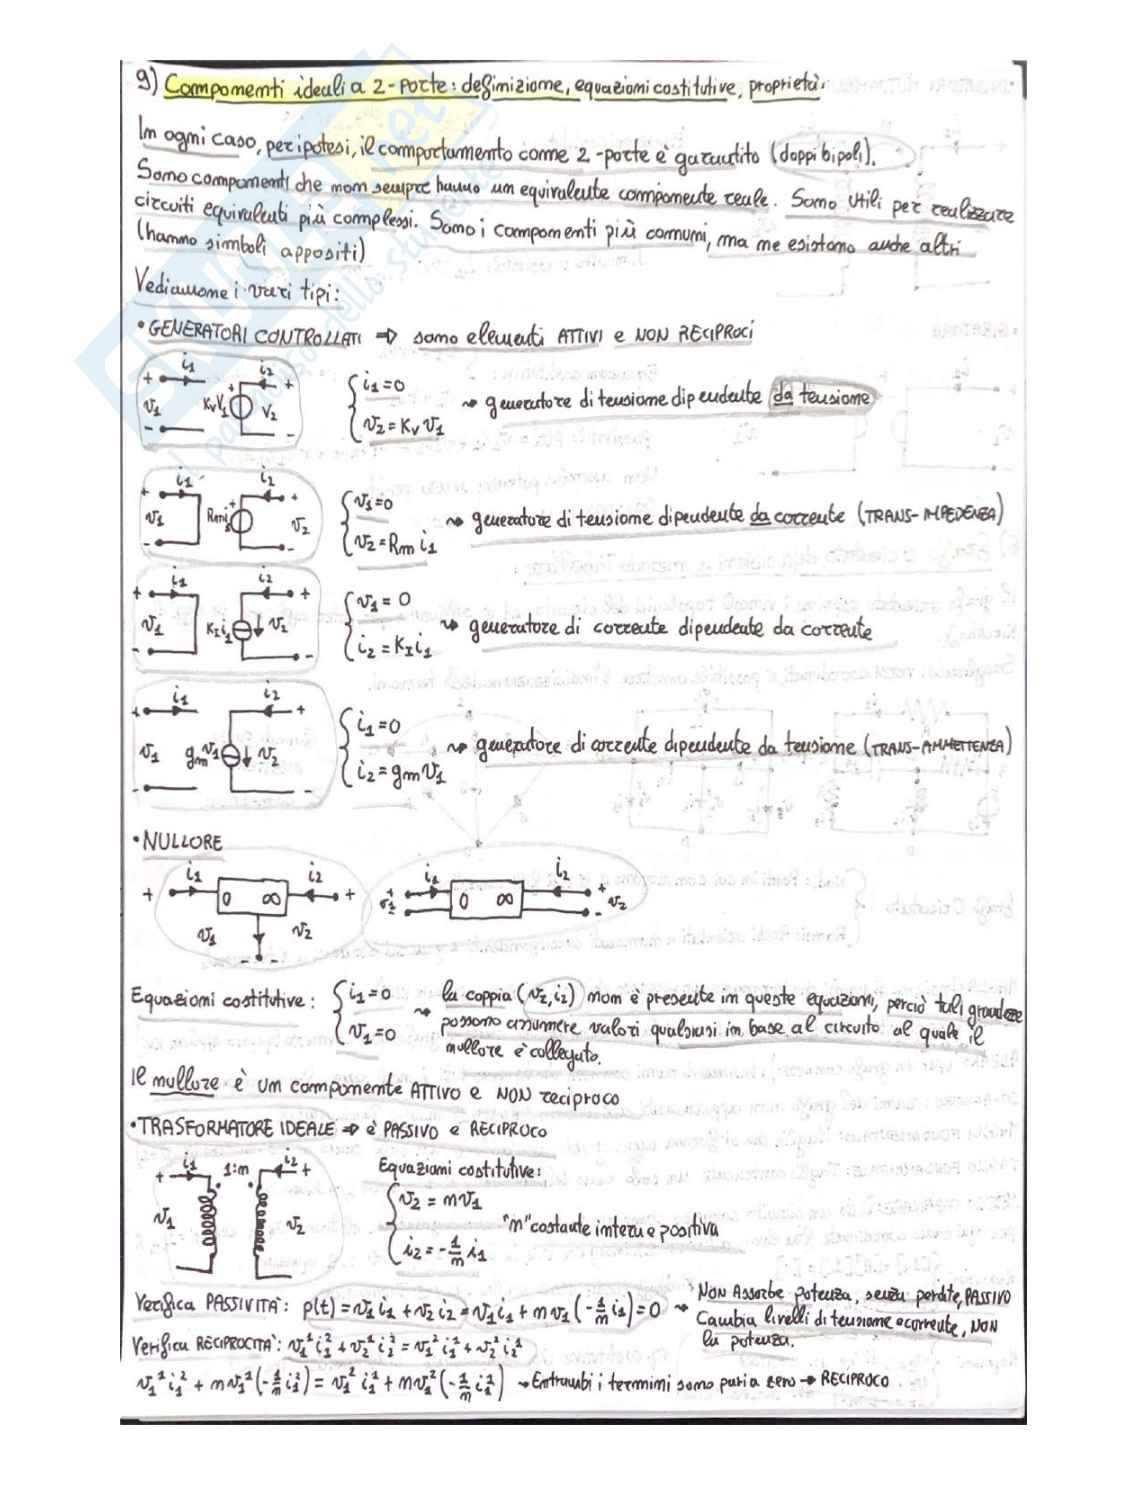 9) Componenti ideali a 2-porte: definizione, equazioni costitutive, proprietà.
In ogni caso, per ipotesi, il comportamento come 2-porte è garantito (doppi bipoli).
Sono componenti che non sempre hanno un equivalente componente reale. Sono utili per realizzare
circuiti equivalenti più complessi. Sono i componenti più comuni, ma ne esistono anche altri
(hanno simboli appositi)
Vediamone i vari tipi:
• GENERATORI CONTROLLATI ⇒ sono elementi ATTIVI e NON RECIPROCI
i1 i2
+ + + +
v1 Kv V1 V2
- -
{ i1=0
v2 = Kv v1
⇝ generatore di tensione dipendente da tensione
i1 i2
+ + +
v1 Rm i1 v2
- -
{ v1=0
v2 = Rm i1
⇝ generatore di tensione dipendente da corrente (TRANS-IMPEDENZA)
i1 i2
+ +
v1 KI i1 v2
- -
{ v1 = 0
i2 = KI i1
⇝ generatore di corrente dipendente da corrente
i1 i2
+ +
v1 gm v1 v2
- -
{ i1=0
i2 = gm v1
⇝ generatore di corrente dipendente da tensione (TRANS-AMMETTENZA)
• NULLORE
i1 i2
+ 0 ∞ +
v1 v2
- -
i1 i2
+ 0 ∞ +
v2
-
Equazioni costitutive: { i1=0
v1=0
→ la coppia (v2, i2) non è presente in queste equazioni, perciò tali grandezze
possono assumere valori qualsiasi in base al circuito al quale il
nullore è collegato.
Il nullore è un componente ATTIVO e NON reciproco
• TRASFORMATORE IDEALE ⇒ è PASSIVO e RECIPROCO
i1 1:n i2
+ +
v1 v2
- -
Equazioni costitutive:
{ v2 = n v1
i2 = -1/n i1
"n" costante intera e positiva
Verifica PASSIVITÀ: p(t) = v1 i1 + v2 i2 = v1 i1 + n v1 (-1/n i1) = 0 → NON Assorbe potenza, senza perdite, PASSIVO
Cambia livelli di tensione e corrente, NON
la potenza.
Verifica RECIPROCITÀ: v1¹ i1² + v2¹ i2² = v1² i1¹ + v2² i2¹
v1¹ i1² + n v1¹ (-1/n i1²) = v1² i1¹ + n v1² (-1/n i1¹) → Entrambi i termini sono pari a zero → RECIPROCO